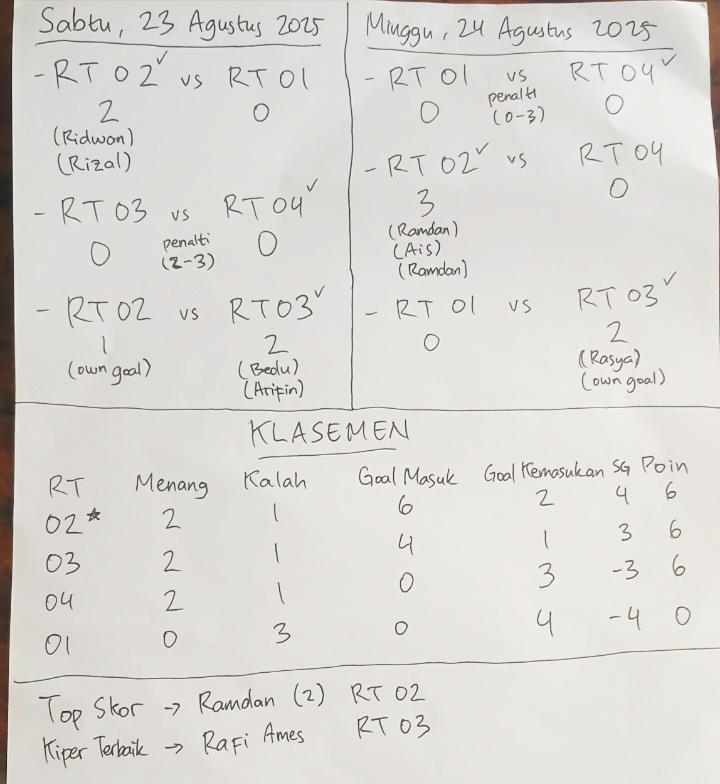 Sabtu, 23 Agustus 2025
- RT 02✓ vs RT 01
2 0
(Ridwan)
(Rizal)
- RT 03 vs RT 04✓
0 penalti 0
(2-3)
- RT 02 vs RT 03✓
1 2
(own goal) (Bedu)
(Aripin)
Minggu, 24 Agustus 2025
- RT 01 vs RT 04✓
0 penalti 0
(0-3)
- RT 02✓ vs RT 04
3 0
(Ramdan)
(Ais)
(Ramdan)
- RT 01 vs RT 03✓
0 2
(Rasya)
(own goal)
KLASEMEN
RT Menang Kalah Goal Masuk Goal Kemasukan SG Poin
02* 2 1 6 2 4 6
03 2 1 4 1 3 6
04 2 1 0 3 -3 6
01 0 3 0 4 -4 0
Top Skor → Ramdan (2) RT 02
Kiper Terbaik → Rafi Ames RT 03